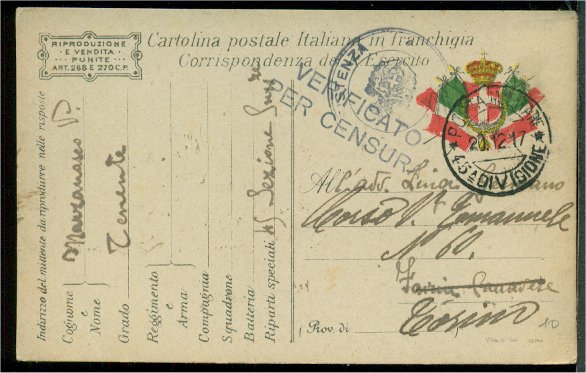 RIPRODUZIONE
E VENDITA
PUNITE
ART. 268 E 270 C.P.
Cartolina postale Italiana in franchigia
Corrispondenza del R. Esercito
VERIFICATO
PER CENSURA
POSTA MILITARE
20.12.17
45ª DIVISIONE
Indirizzo del mittente da riprodurre nelle risposte
Cognome
e
Nome
Grado Tenente
Reggimento
e
Arma
Compagnia
Squadrone
Batteria
Riparti speciali Sezione
All'avv. Luigi
Corso V. Emmanuele
N. 60.
Favria Canavese
Prov. di Torino
10